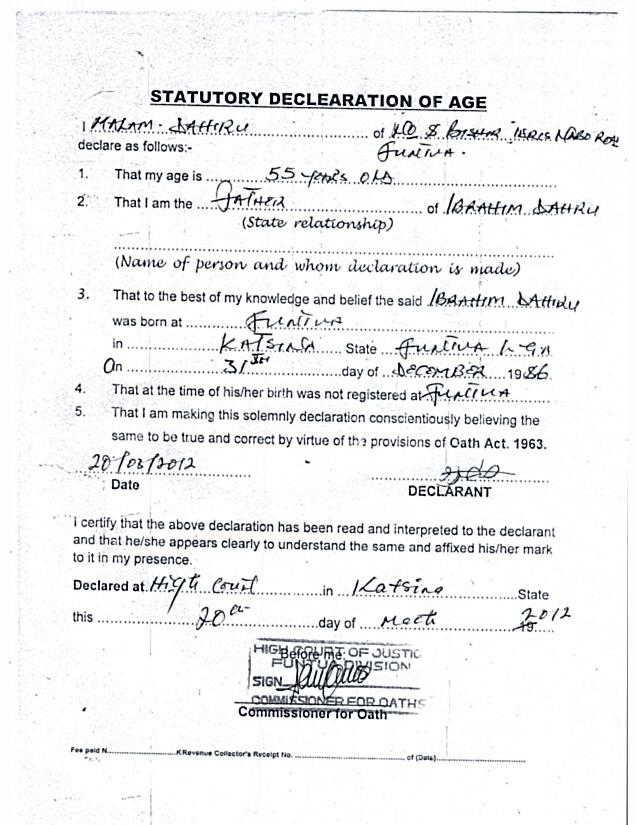 STATUTORY DECLEARATION OF AGE
I MALAM DAHIRU of NO 8 BISHIR IDRIS NABO ROAD
declare as follows:- FUNTUA.
1. That my age is 55 YEARS OLD
2. That I am the FATHER of IBRAHIM DAHIRU
(State relationship)
(Name of person and whom declaration is made)
3. That to the best of my knowledge and belief the said IBRAHIM DAHIRU
was born at FUNTUA
in KATSINA State FUNTUA L.G.A
On 31 ST day of DECEMBER 1986
4. That at the time of his/her birth was not registered at FUNTUA
5. That I am making this solemnly declaration conscientiously believing the
same to be true and correct by virtue of the provisions of Oath Act. 1963.
20/03/2012
Date DECLARANT
I certify that the above declaration has been read and interpreted to the declarant
and that he/she appears clearly to understand the same and affixed his/her mark
to it in my presence.
Declared at High Court in Katsina State
this 20th day of March 2012
19
HIGH COURT OF JUSTIC
Before me:
FUNTUA DIVISION
SIGN
COMMISSIONER FOR OATHS
Commissioner for Oath
Fee paid N KRevenue Collector's Receipt No. of (Date)